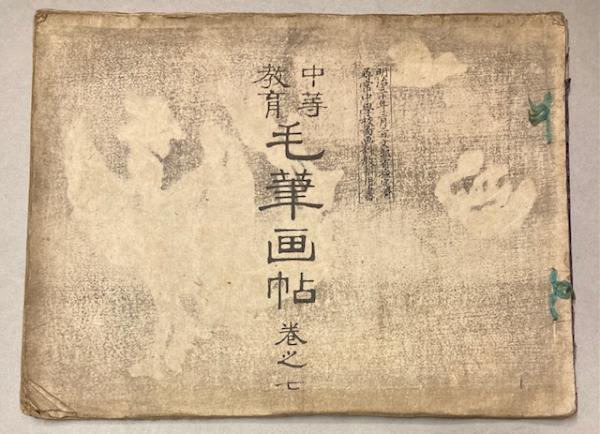 明治三十年 月 日文部省検定済
尋常中學校圖画科教科用書
中等
教育
毛筆画帖 巻之七